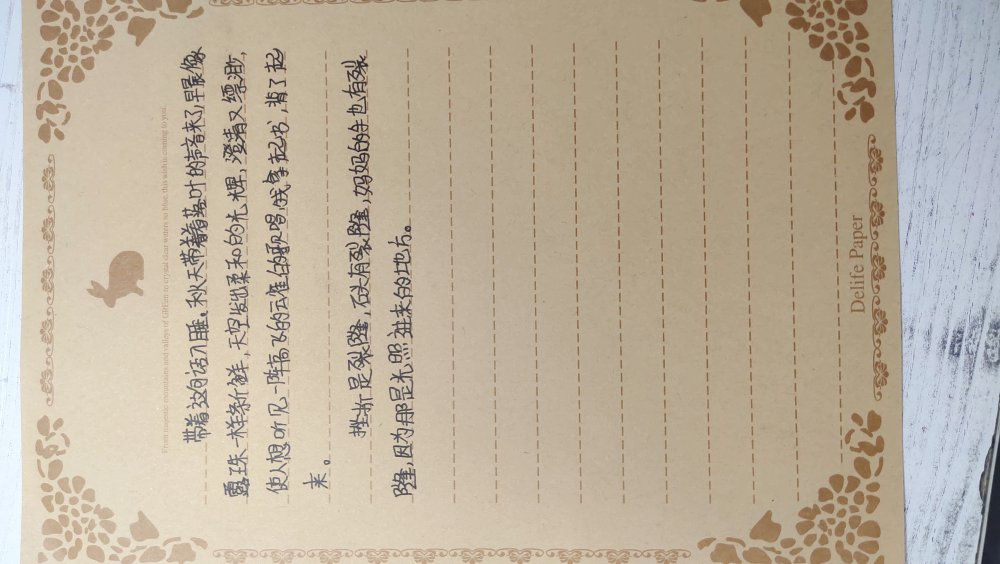 From majestic mountains and valleys of GREen to crystal clear waters so blue, this wish is coming to you.
带着这句话入睡。秋天带着落叶的声音来了,早晨像
露珠一样新鲜,天空发出柔和的光辉,澄清又缥渺,
使人想听见一阵高飞的云雀的歌唱,我拿起书,背了起
来。
挫折是裂隙,石头有裂隙,妈妈的手也有裂
隙,因为那是光照进来的地方。
Delife Paper